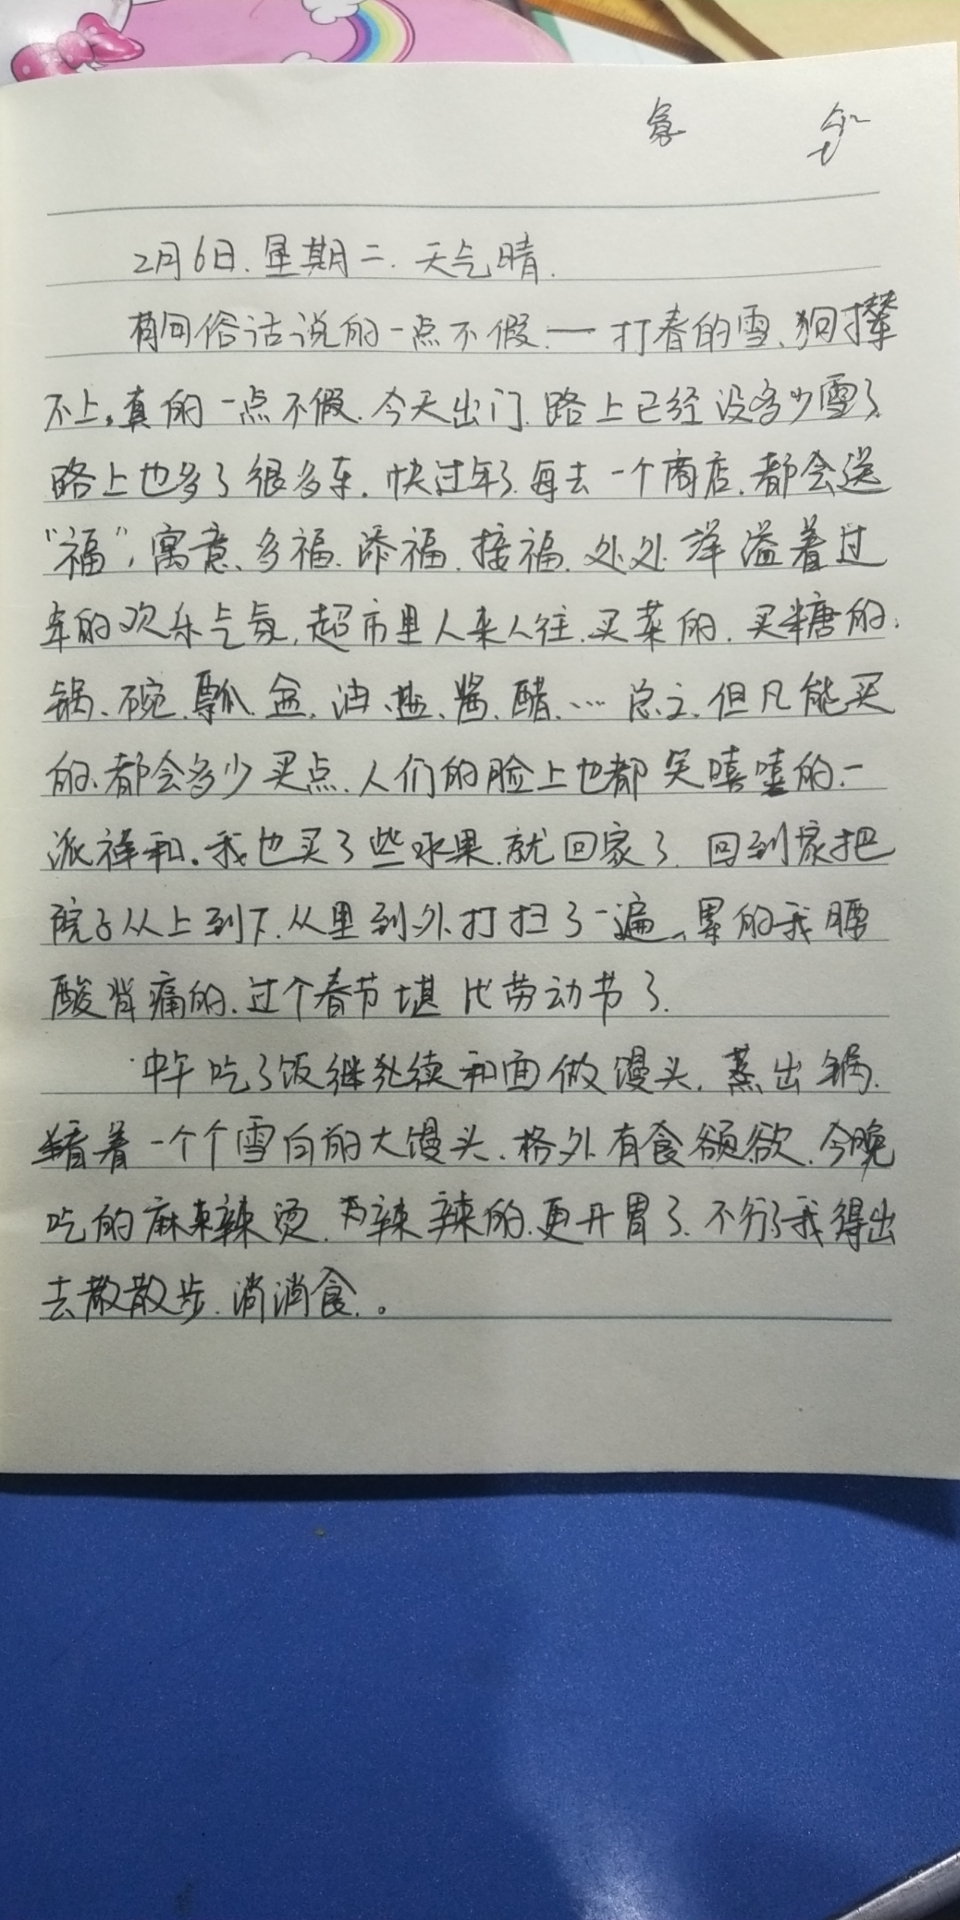 2月6日.星期二.天气晴.
有句俗话说的一点不假.——打春的雪、狗撵
不上。真的一点不假.今天出门.路上已经没多少雪了
路上也多了很多车.快过年了.每去一个商店.都会送
“福”,寓意、多福.添福.接福.处处洋溢着过
年的欢乐气氛,超市里人来人往.买菜的.买糖的.
锅、碗、瓢.盆.油、盐、酱、醋、… 总之.但凡能买
的.都会多少买点.人们的脸上也都笑嘻嘻的.一
派祥和.我也买了些水果.就回家了.回到家把
院子从上到下.从里到外.打扫了一遍、累的我腰
酸背痛的.过个春节堪比劳动节了.
中午吃了饭继续和面做馒头.蒸出锅.
看着一个个雪白的大馒头.格外有食欲.今晚
吃的麻辣烫.辣辣的.更开胃了.不行了我得出
去散散步.消消食.。